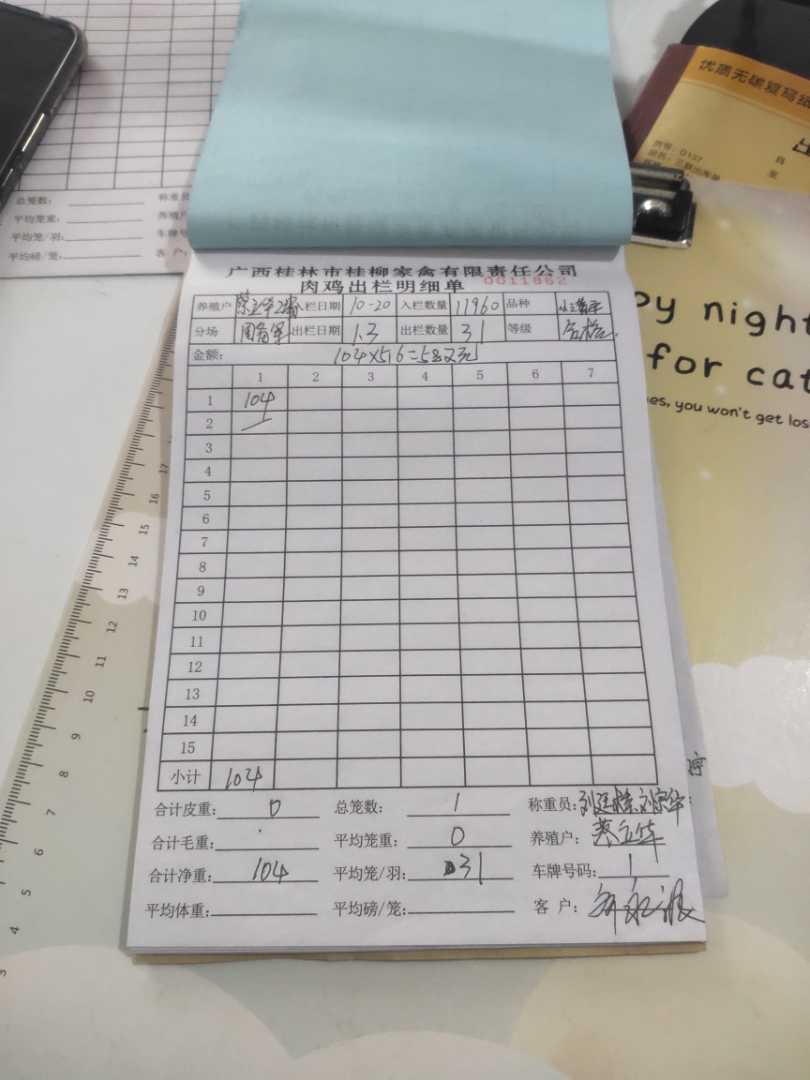 优质无碳复写纸
总笼数:
平均笼重:
平均笼/羽:
平均磅/笼:
称重员
养殖户
车牌号
客 户:
广西桂林市桂柳家禽有限责任公司
肉鸡出栏明细单 0011862
养殖户 蔡立华2 入栏日期 10-20 入栏数量 11960 品种
分场 出栏日期 1.3 出栏数量 31 等级 合格
金额:
1 2 3 4 5 6 7
1 104
2
3
4
5
6
7
8
9
10
11
12
13
14
15
小计 104
合计皮重: 0 总笼数: 1 称重员:
合计毛重: 平均笼重: 0 养殖户: 蔡立华
合计净重: 104 平均笼/羽: 31 车牌号码: 1
平均体重: 平均磅/笼: 客 户:
py night
for cat
es, you won't get los
3
4
5
6
7
8
9
10
11
12
13
14
15
16
17